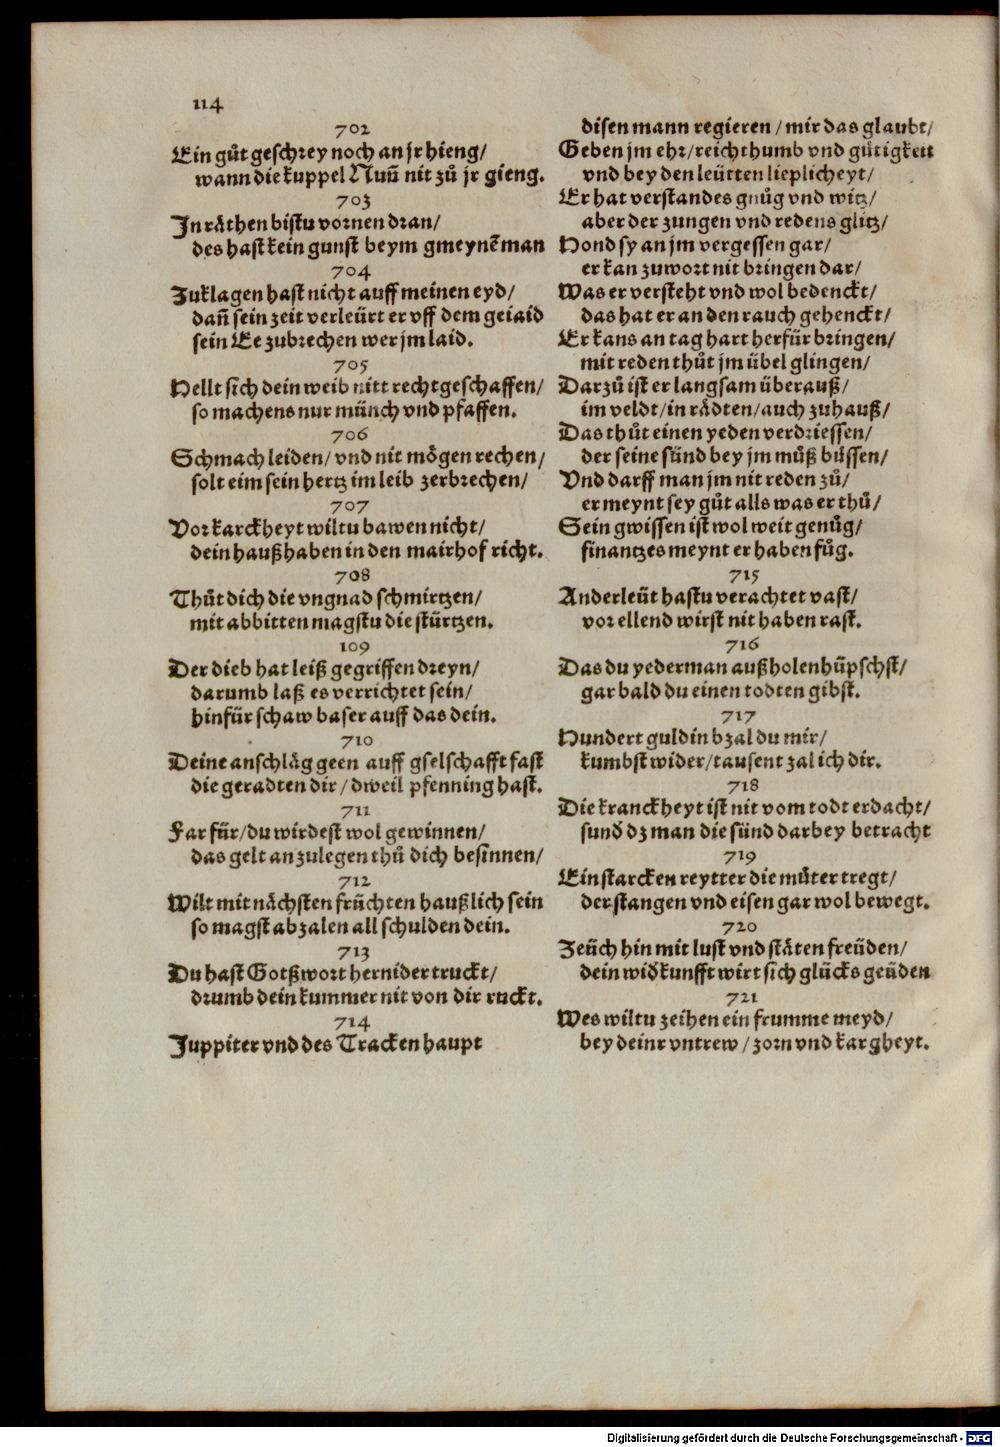 114
702
Ein gůt geschrey noch an jr hieng/
wann die kuppel Nuñ nit zů jr gieng.
703
In räthen bistu vornen dran/
des hast kein gunst beym gmeynẽ man
704
Zuklagen hast nicht auff meinen eyd/
dañ sein zeit verleürt er vff dem geiaid
sein Ee zubrechen wer jm laid.
705
Hellt sich dein weib nitt rechtgeschaffen/
so machens nur münch vnd pfaffen.
706
Schmach leiden/ vnd nit mögen rechen/
solt eim sein hertz im leib zerbrechen/
707
Vor karckheyt wiltu bawen nicht/
dein haußhaben in den mairhof richt.
708
Thůt dich die vngnad schmirtzen/
mit abbitten magstu die stürtzen.
109
Der dieb hat leiß gegriffen dreyn/
darumb laß es verrichtet sein/
hinfür schaw baser auff das dein.
710
Deine anschläg geen auff gselschafft fast
die geradten dir/ dweil pfenning hast.
711
Far für/ du wirdest wol gewinnen/
das gelt anzulegen thů dich besinnen/
712
Wilt mit nächsten früchten haußlich sein
so magst abzalen all schulden dein.
713
Du hast Gotßwort hernider truckt/
drumb dein kummer nit von dir ruckt.
714
Juppiter vnd des Tracken haupt
disen mann regieren/ mir das glaubt/
Geben jm ehr/ reichthumb vnd gütigkeit
vnd bey den leütten lieplicheyt/
Er hat verstandes gnůg vnd witz/
aber der zungen vnd redens glitz/
Hond sy an jm vergessen gar/
er kan zuwort nit bringen dar/
Was er versteht vnd wol bedenckt/
das hat er an den rauch gehenckt/
Er kans an tag hart herfür bringen/
mit reden thůt jm übel glingen/
Darzů ist er langsam überauß/
im veldt/ in rädten/ auch zuhauß/
Das thůt einen yeden verdriessen/
der seine sünd bey jm můß büssen/
Vnd darff man jm nit reden zů/
er meynt sey gůt alls was er thů/
Sein gwissen ist wol weit genůg/
finantzes meynt er haben fůg.
715
Ander leüt hastu verachtet vast/
vor ellend wirst nit haben rast.
716
Das du yederman außholen hüpschst/
gar bald du einen todten gibst.
717
Hundert guldin bzal du mir/
kumbst wider/ tausent zal ich dir.
718
Die kranckheyt ist nit vom todt erdacht/
sund dz man die sünd darbey betracht
719
Ein starcken reytter die můter tregt/
der stangen vnd eisen gar wol bewegt.
720
Zeüch hin mit lust vnd stäten freüden/
dein widkunfft wirt sich glücks geüden
721
Wes wiltu zeihen ein frumme meyd/
bey deinr vntrew/ zorn vnd kargheyt.
Digitalisierung gefördert durch die Deutsche Forschungsgemeinschaft - DFG